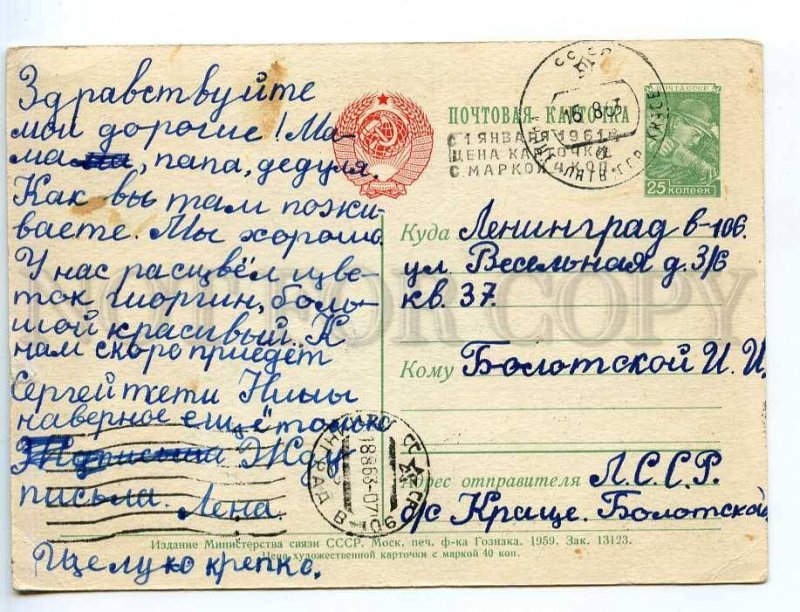 Здравствуйте
мои дорогие! Ма-
ма, папа, дедуля.
Как вы там пожи-
ваете. Мы хорошо.
У нас расцвёл цве-
ток гиоргин, боль-
шой красивый. К
нам скоро приедет
Сергей тети Нины
наверное ещё только
Жду
письма. Лена.
Целую крепко.
ПОЧТОВАЯ КАРТОЧКА
С 1 ЯНВАРЯ 1961г.
ЦЕНА КАРТОЧКИ
С МАРКОЙ 4 коп.
ПОЧТА СССР
25 КОПЕЕК
16 8 63
Куда Ленинград в-106.
ул. Весельная д. 3/6
кв. 37.
Кому Болотской И. И.
Адрес отправителя Л.С.С.Р.
о/с Краце. Болотской
ЛЕНИНГРАД
18863-07
В-106
СССР
Издание Министерства связи СССР. Моск. печ. ф-ка Гознака. 1959. Зак. 13123.
Цена художественной карточки с маркой 40 коп.
NOT FOR COPY